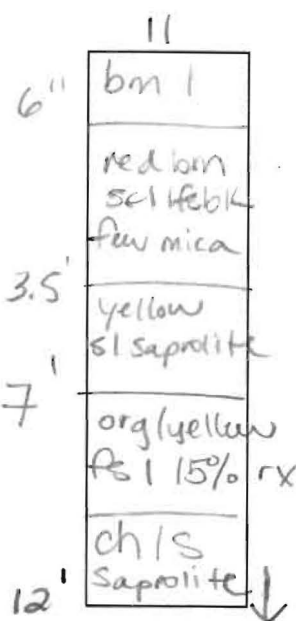 11
6" brn l
red brn
scl lfsbk
few mica
3.5'
yellow
sl saprolite
7'
org/yellow
fsl 15% rx
ch/s
saprolite
12'